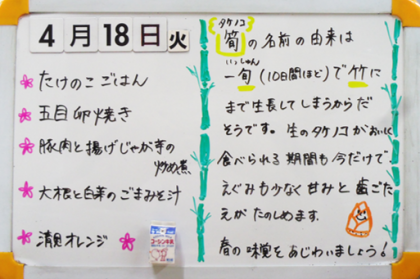 4月18日火
たけのこごはん
五目卵焼き
豚肉と揚げじゃが芋の
炒め煮
大根と白菜のごまみそ汁
清見オレンジ
タケノコ
筍の名前の由来は
いっしゅん
一旬(10日間ほど)で竹に
まで生長してしまうからだ
そうです。生のタケノコがおいしく
食べられる期間も今だけで
えぐみも少なく甘みと歯ごた
えがたのしめます。
春の味覚をあじわいましょう!